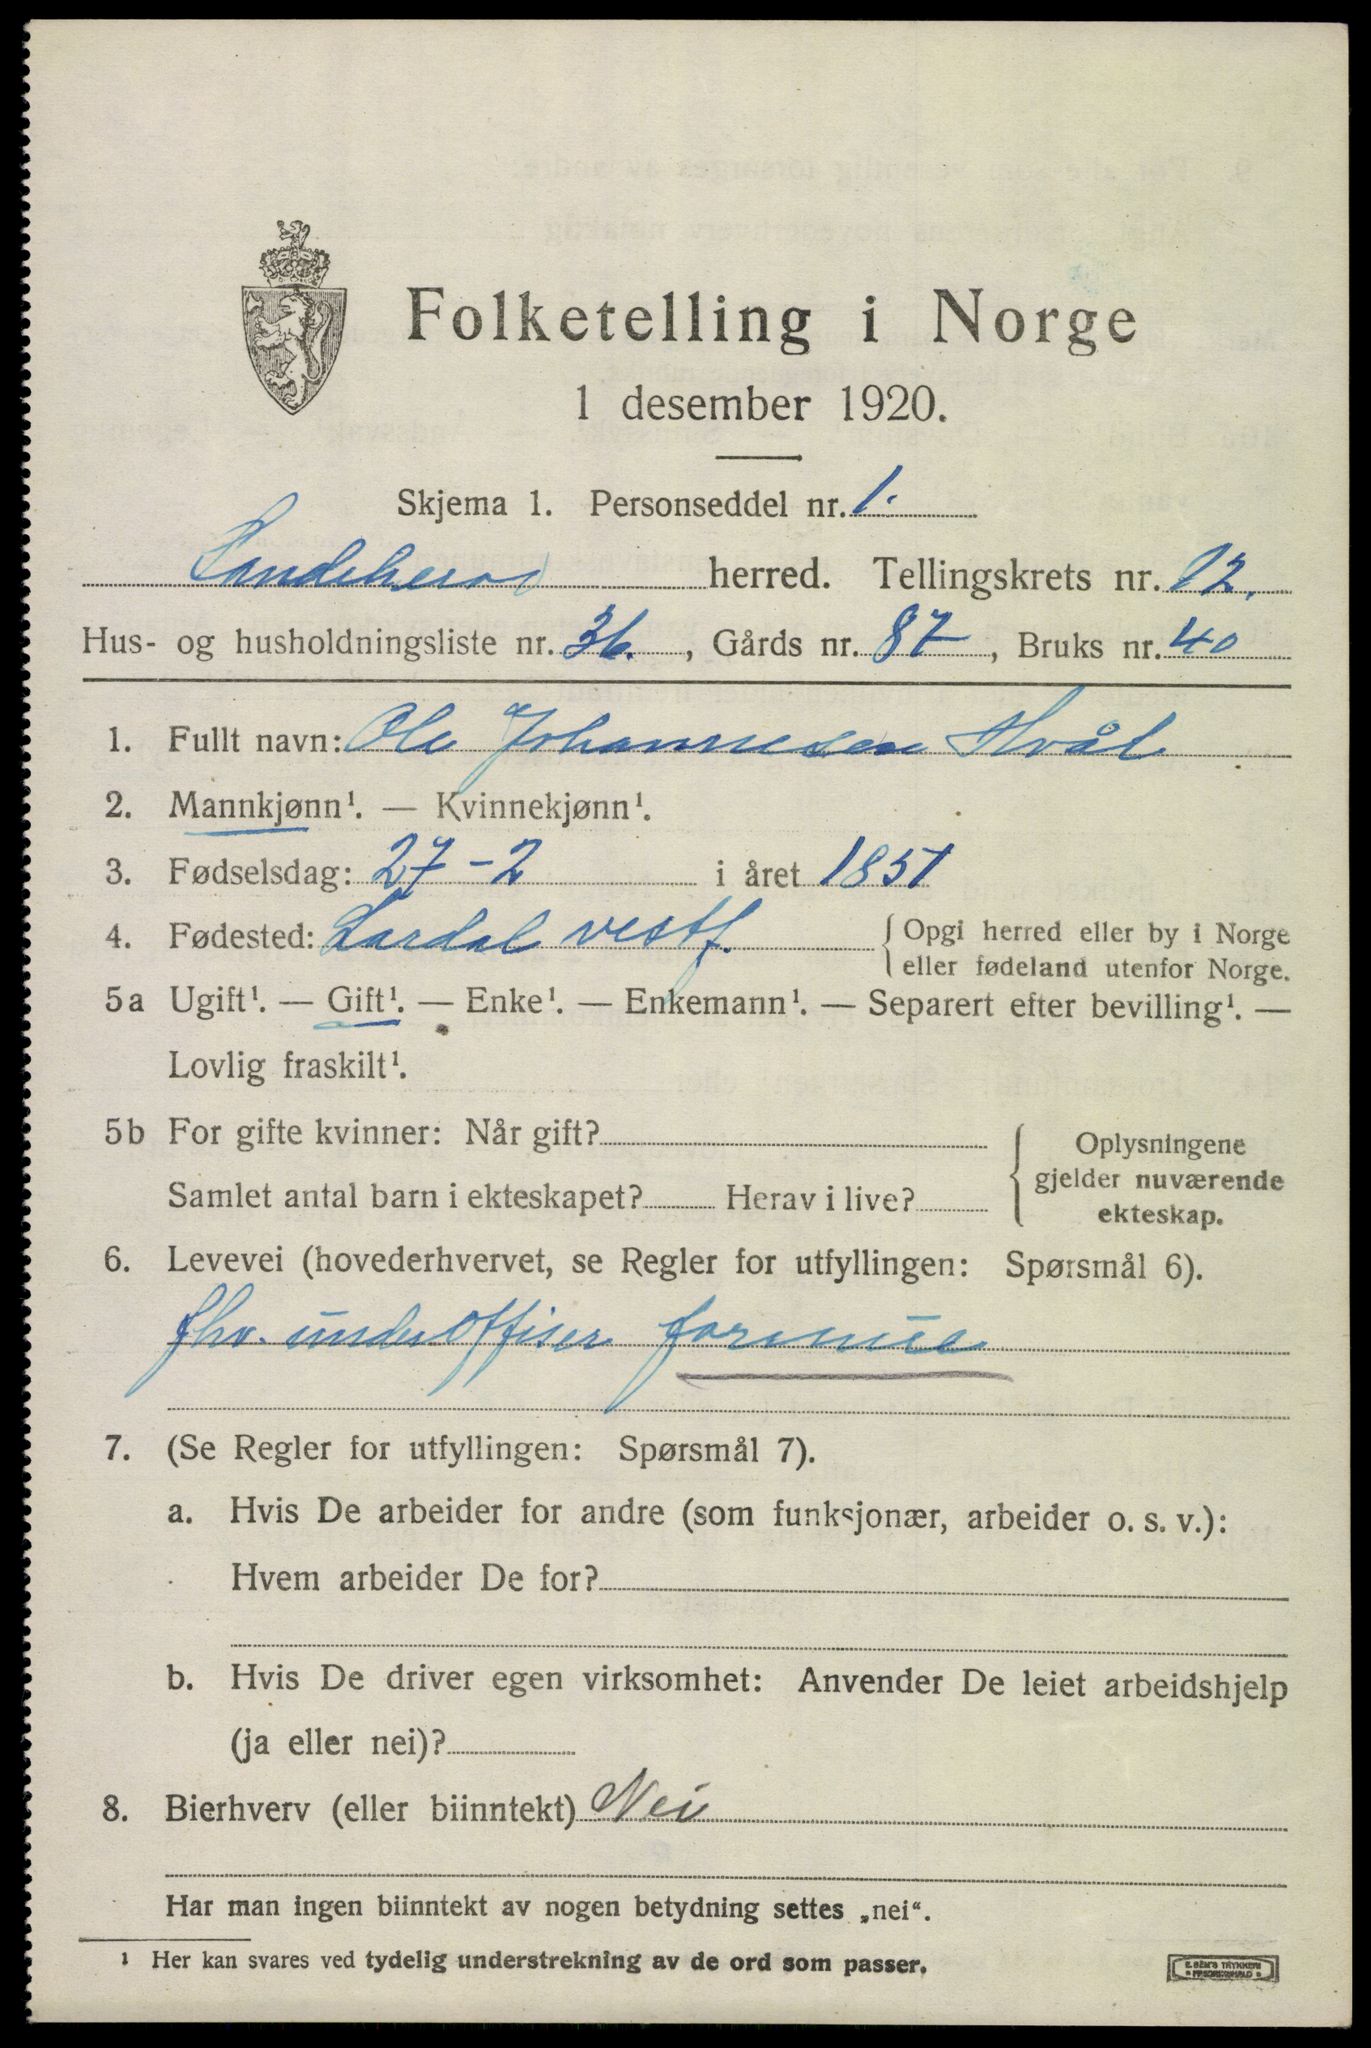 Folketelling i Norge
1 desember 1920.
Skjema 1. Personseddel nr. 1.
Sandeherad herred. Tellingskrets nr. 12.
Hus- og husholdningsliste nr. 36., Gårds nr. 87, Bruks nr. 40
1. Fullt navn: Ole Johannesen Hvål
2. Mannkjønn¹. — Kvinnekjønn¹.
3. Fødselsdag: 27-2 i året 1851
4. Fødested: Lardal vestf. { Opgi herred eller by i Norge
eller fødeland utenfor Norge.
5a Ugift¹. — Gift¹. — Enke¹. — Enkemann¹. — Separert efter bevilling¹. —
Lovlig fraskilt¹.
5b For gifte kvinner: Når gift?
Samlet antal barn i ekteskapet? Herav i live?
{ Oplysningene
gjelder nuværende
ekteskap.
6. Levevei (hovederhvervet, se Regler for utfyllingen: Spørsmål 6).
fhv. underoffiser formue
7. (Se Regler for utfyllingen: Spørsmål 7).
a. Hvis De arbeider for andre (som funksjonær, arbeider o. s. v.):
Hvem arbeider De for?
b. Hvis De driver egen virksomhet: Anvender De leiet arbeidshjelp
(ja eller nei)?
8. Bierhverv (eller biinntekt) Nei
Har man ingen biinntekt av nogen betydning settes „nei“.
¹ Her kan svares ved tydelig understrekning av de ord som passer.
E. SEM'S TRYKKERI
FREDRIKSHALD